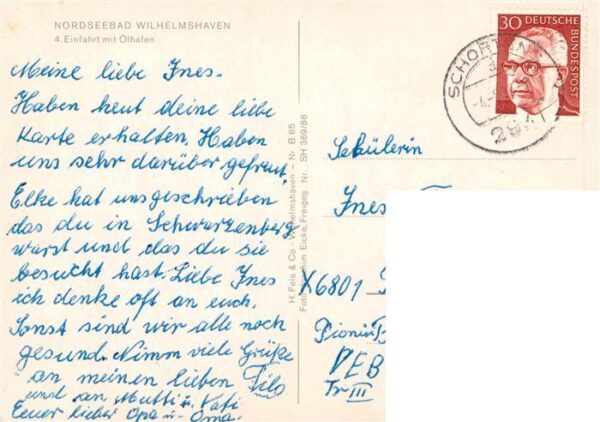 NORDSEEBAD WILHELMSHAVEN
4. Einfahrt mit Ölhafen
Meine liebe Ines.
Haben heut deine liebe
Karte erhalten. Haben
uns sehr darüber gefreut.
Elke hat uns geschrieben
das du in Schwarzenberg
warst und das du sie
besucht hast. Liebe Ines
ich denke oft an euch.
Sonst sind wir alle noch
gesund. Nimm viele Grüße
an meinen lieben Tilo
und an Mutti u. Vati
Euer lieber Opa u. Oma.
H. Fels & Co - Wilhelmshaven - Nr. B 65
Eicke, Freigeg. Nr. SH 369/88
30 DEUTSCHE
BUNDESPOST
SCHORTENS
Schülerin
Ines
X6801
VEB
Tr III